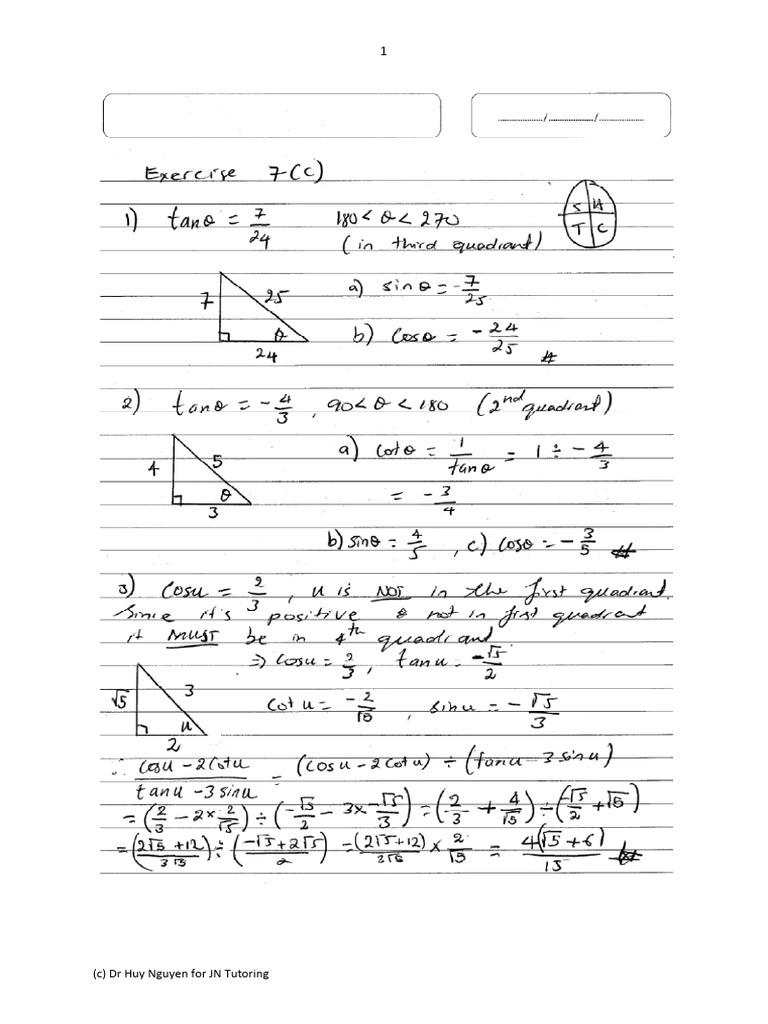 1
................../................../..................
Exercise 7(c)
1) tanθ = 7/24 180 < θ < 270
(in third quadrant)
S A
T C
7 25 θ 24
a) sinθ = -7/25
b) cosθ = -24/25 #
2) tanθ = -4/3 , 90 < θ < 180 (2nd quadrant)
4 5 θ 3
a) cotθ = 1/tanθ = 1 ÷ -4/3
= -3/4
b) sinθ = 4/5 , c) cosθ = -3/5 #
3) cosu = 2/3 , u is NOT in the first quadrant.
Since it's positive & not in first quadrant
it MUST be in 4th quadrant
⇒ cosu = 2/3 , tanu = -√5/2
√5 3 u 2
cotu = -2/√5 , sinu = -√5/3
∴ (cosu - 2cotu)/(tanu - 3sinu) = (cosu - 2cotu) ÷ (tanu - 3sinu)
= (2/3 - 2×-2/√5) ÷ (-√5/2 - 3×-√5/3) = (2/3 + 4/√5) ÷ (-√5/2 + √5)
= (2√5 + 12)/3√5 ÷ (-√5 + 2√5)/2 = (2√5 + 12)/3√5 × 2/√5 = 4(√5 + 6)/15 #
(c) Dr Huy Nguyen for JN Tutoring